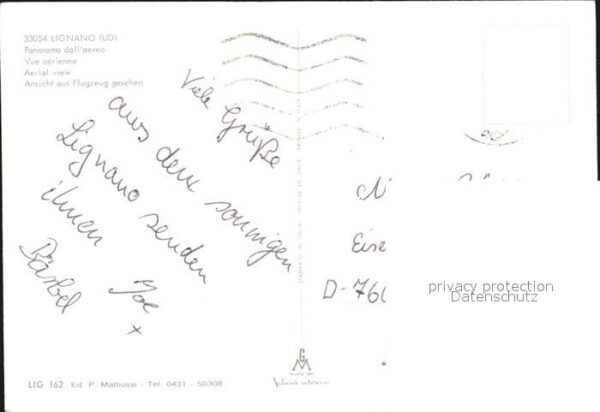 33054 LIGNANO (UD)
Panorama dall'aereo
Vue aérienne
Aerial view
Ansicht aus Flugzeug gesehen
Viele Grüße
aus dem sonnigen
Lignano senden
ihnen Joe
Bärbel x
Eise
D-760
privacy protection
Datenschutz
LIG 162 Ed. P. Mattiussi - Tel. 0431 - 50308